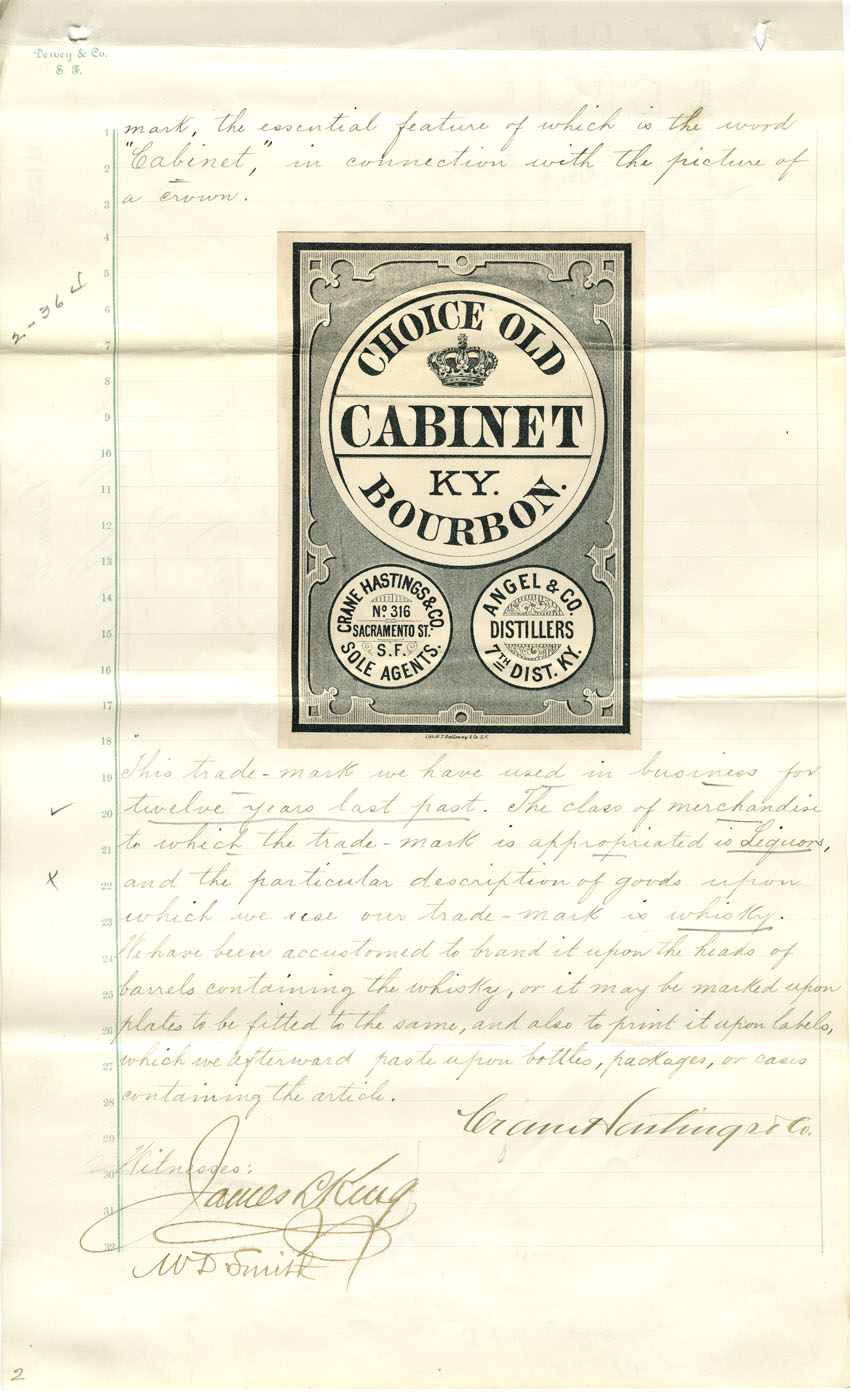 Dewey & Co.
S. F.
1 mark, the essential feature of which is the word
2 "Cabinet," in connection with the picture of
3 a crown.
4
5
2-36
6
7
8
9
10
11
12
13
14
15
16
17
18
CHOICE OLD
CABINET
KY.
BOURBON.
CRANE HASTINGS & CO.
No 316
SACRAMENTO ST.
S.F.
SOLE AGENTS.
ANGEL & CO.
DISTILLERS
7TH DIST. KY.
Lith. W. T. Galloway & Co. S.F.
19 This trade-mark we have used in business for
20 twelve years last past. The class of merchandise
21 to which the trade-mark is appropriated is Liquors,
22 and the particular description of goods upon
23 which we use our trade-mark is whisky.
24 We have been accustomed to brand it upon the heads of
25 barrels containing the whisky, or it may be marked upon
26 plates to be fitted to the same, and also to print it upon labels,
27 which we afterward paste upon bottles, packages, or cases
28 containing the article.
Crane Hastings & Co.
29
30 Witnesses:
31 James L King
32
W D Smith
2